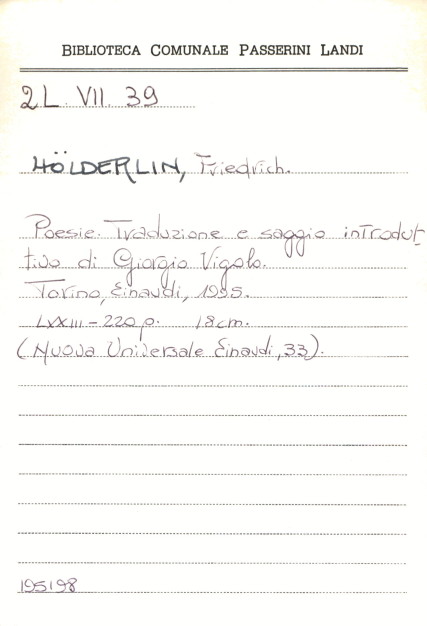 BIBLIOTECA COMUNALE PASSERINI LANDI
2L. VII. 39
HÖLDERLIN, Friedrich.
Poesie. Traduzione e saggio introdut-
tivo di Giorgio Vigolo.
Torino, Einaudi, 1995.
LXXIII-220 p. 18cm.
(Nuova Universale Einaudi, 33).
195198